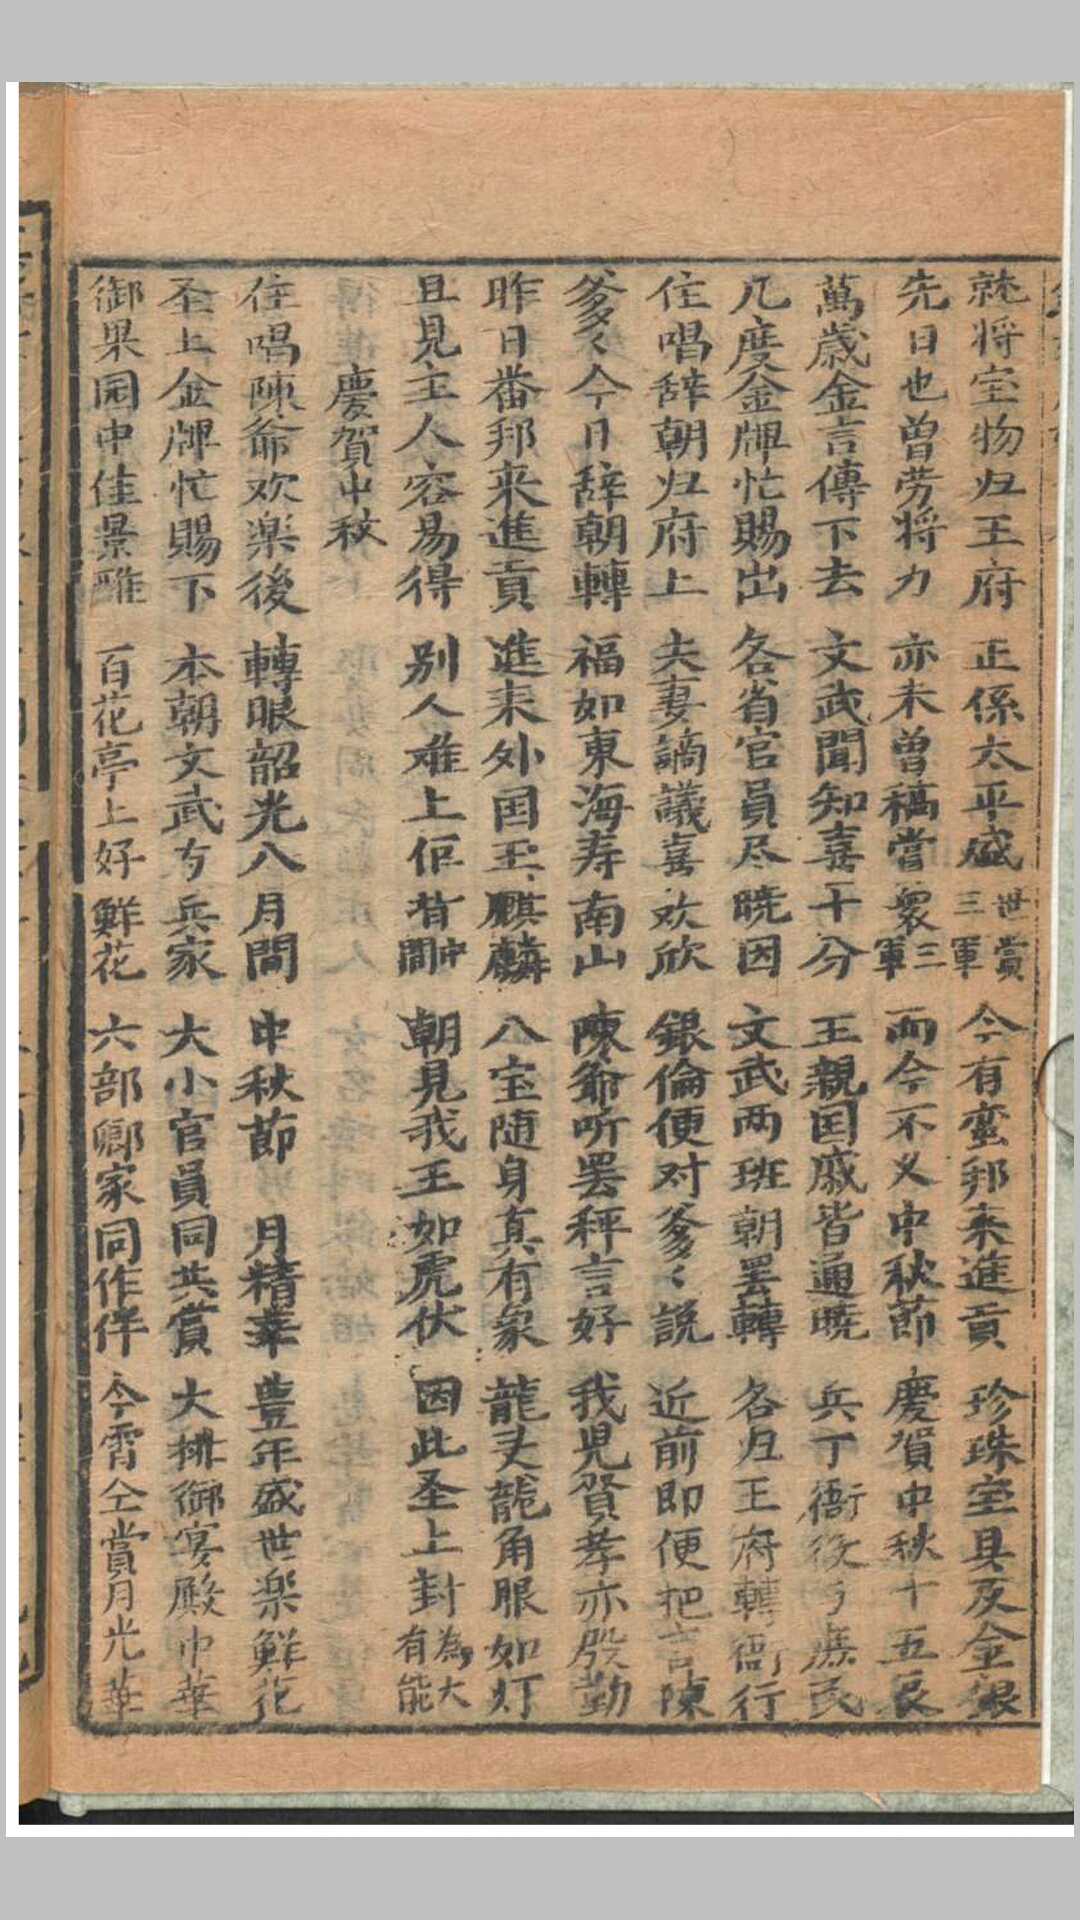 就将宝物归王府 正係太平盛世賞三軍 今有蛮邦来進貢 珍珠宝具及金銀
先日也曾劳将力 亦未曾犒嘗衆三軍 而今不义中秋節 慶賀中秋十五辰
萬歳金言傳下去 文武聞知喜十分 王親国戚皆通曉 兵丁衙役与庶民
几度金牌忙賜出 各省官員尽曉因 文武两班朝罢轉 各归王府轉衙行
住唱辞朝归府上 夫妻謫議喜欢欣 銀倫便对爹〻說 近前即便把言陳
爹〻今日辞朝轉 福如東海寿南山 陳爺听罢秤言好 我児賢孝亦殷勤
昨日番邦来進貢 進来外国玉麒麟 八宝随身真有象 龍头龍角眼如灯
且見主人容易得 别人难上佢背中間 朝見我王如虎伏 因此圣上封為大有能
慶賀中秋
住唱陳爺欢楽後 轉眼韶光八月間 中秋節 月精華 豊年盛世楽鮮花
圣上金牌忙賜下 本朝文武与兵家 大小官員同共賞 大排御宴殿中華
御果园中佳景雅 百花亭上好鮮花 六部卿家同作伴 今霄仝賞月光華